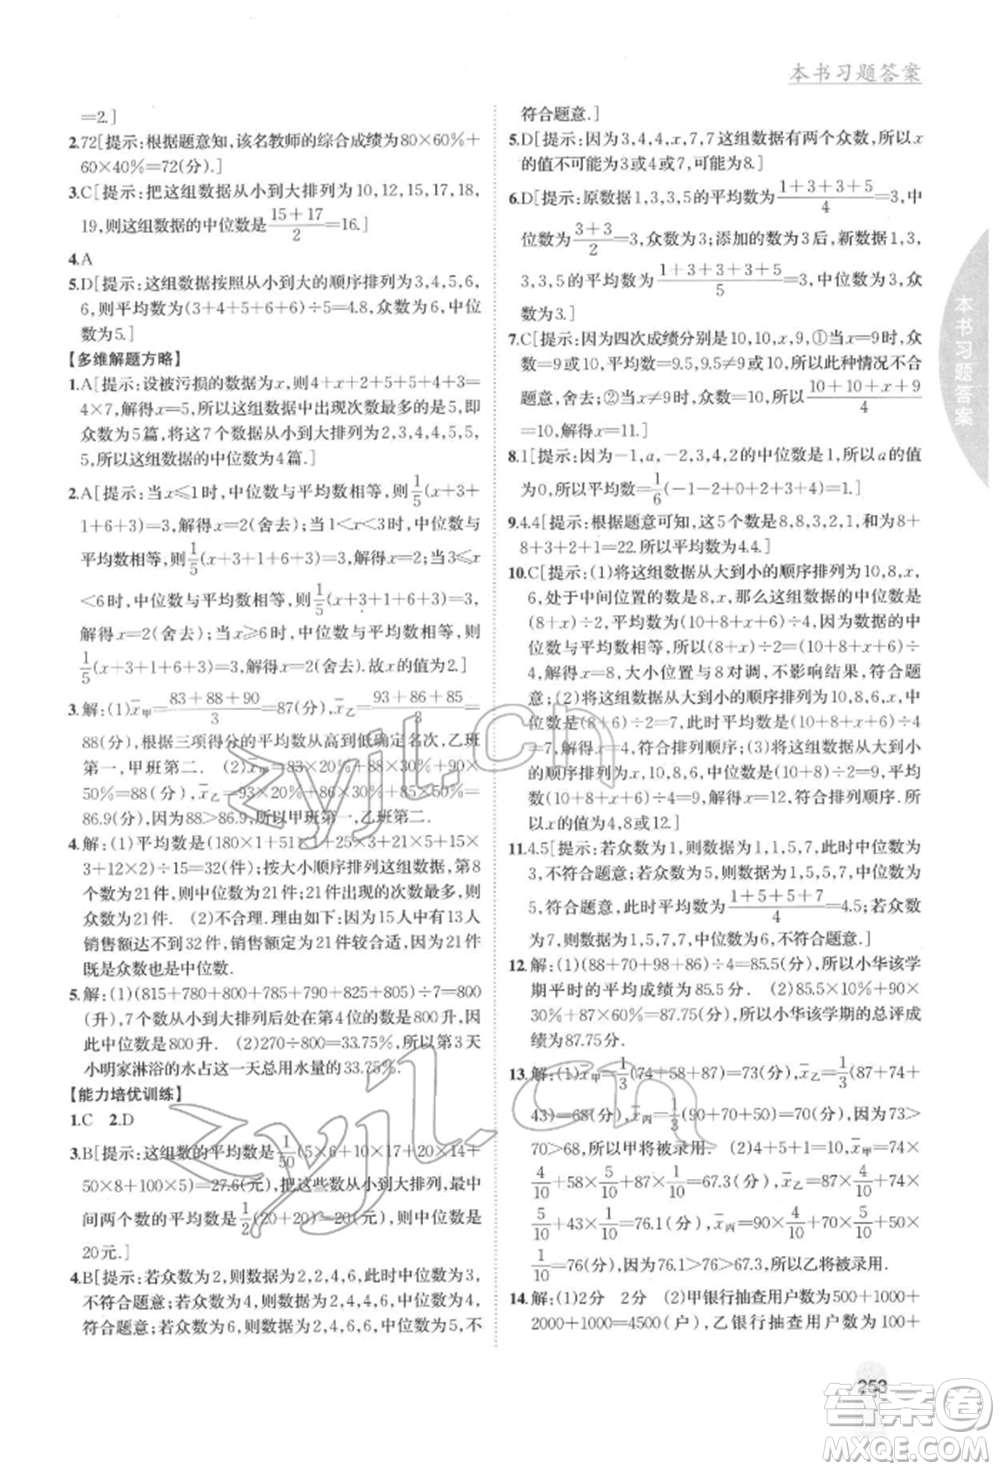 本书习题答案
=2.]
2.72[提示:根据题意知,该名教师的综合成绩为80×60%+
60×40%=72(分).]
3.C[提示:把这组数据从小到大排列为10,12,15,17,18,
19,则这组数据的中位数是\frac{15+17}{2}=16.]
4.A
5.D[提示:这组数据按照从小到大的顺序排列为3,4,5,6,
6,则平均数为(3+4+5+6+6)÷5=4.8,众数为6,中位
数为5.]
【多维解题方略】
1.A[提示:设被污损的数据为x,则4+x+2+5+5+4+3=
4×7,解得x=5,所以这组数据中出现次数最多的是5,即
众数为5篇,将这7个数据从小到大排列为2,3,4,4,5,5,
5,所以这组数据的中位数为4篇.]
2.A[提示:当x⩽1时,中位数与平均数相等,则\frac{1}{5}(x+3+
1+6+3)=3,解得x=2(舍去);当1<x<3时,中位数与
平均数相等,则\frac{1}{5}(x+3+1+6+3)=3,解得x=2;当3⩽x
<6时,中位数与平均数相等,则\frac{1}{5}(x+3+1+6+3)=3,
解得x=2(舍去);当x⩾6时,中位数与平均数相等,则
\frac{1}{5}(x+3+1+6+3)=3,解得x=2(舍去).故x的值为2.]
3.解:(1)x̄甲=\frac{83+88+90}{3}=87(分),x̄乙=\frac{93+86+85}{3}=
88(分),根据三项得分的平均数从高到低确定名次,乙班
第一,甲班第二. (2)x̄甲=83×20%+88×30%+90×
50%=88(分),x̄乙=93×20%+86×30%+85×50%=
86.9(分),因为88>86.9,所以甲班第一,乙班第二.
4.解:(1)平均数为(180×1+51×1+27×2+21×5+15×
3+12×2)÷15=32(件);按大小顺序排列这组数据,第8
个数为21件,则中位数为21件;出现的次数最多的是21件,
则众数为21件. (2)不合理.理由如下:因为15人中有13人
销售额达不到32件,销售额定为21件较合适,因为21件
既是众数也是中位数.
5.解:(1)(815+780+800+785+790+825+805)÷7=800
(升),7个数从小到大排列后处在第4位的数是800升,因此
中位数是800升. (2)270÷800=33.75%,所以第3天
小明家淋浴的水占这一天总用水量的33.75%.
【能力培优训练】
1.C 2.D
3.B[提示:这组数的平均数是\frac{1}{50}(5×6+10×17+20×14+
50×8+100×5)=27.6(元),把这些数从小到大排列,最中
间两个数的平均数是\frac{1}{2}(20+20)=20(元),则中位数是
20元.]
4.B[提示:若众数为2,则数据为2,2,4,6,此时中位数为3,
不符合题意;若众数为4,则数据为2,4,4,6,中位数为4,
符合题意;若众数为6,则数据为2,4,6,6,中位数为5,不
符合题意.]
5.D[提示:因为3,4,4,x,7,7这组数据有两个众数,所以x
的值不可能为3或4或7,则x可能为8.]
6.D[提示:原数据1,3,3,5的平均数为\frac{1+3+3+5}{4}=3,中
位数为\frac{3+3}{2}=3,众数为3;添加的数为3后,新数据1,3,
3,3,5的平均数为\frac{1+3+3+3+5}{5}=3,中位数为3,众
数为3.]
7.C[提示:因为四次成绩分别是10,10,x,9,①当x=9时,
中位数与平均数为9.5,9.5≠9或10,所以此种情况不合
题意,舍去;②当x≠9时,众数为10,则\frac{10+10+x+9}{4}
=10,解得x=11.]
8.1[提示:因为-1,a,-2,3,4,2的中位数为1,所以a的值
为0,则平均数为\frac{1}{6}(-1-2+0+2+3+4)=1.]
9.4.4[提示:根据题意可知,这5个数是8,8,3,2,1,和为8+
8+3+2+1=22.所以平均数为4.4.]
10.C[提示:(1)将这组数据从大到小的顺序排列为10,8,x,
6,处于中间位置的数是8,x,那么这组数据的中位数是
(8+x)÷2,平均数为(10+8+x+6)÷4,因为数据10,8,
x,6的中位数与平均数相等,所以(8+x)÷2=(10+8+x+6)÷
4,解得x=8,大小位置与8对调,不影响结果,符合题
意;(2)将这组数据从大到小的顺序排列后10,8,6,x,中
位数是(8+6)÷2=7,此时平均数是(10+8+x+6)÷4
=7,解得x=4,符合排列顺序;(3)将这组数据从大到小
的顺序排列后x,10,8,6,中位数是(10+8)÷2=9,平均
数(10+8+x+6)÷4=9,解得x=12,符合排列顺序.所
以x的值为4,8或12.]
11.4.5[提示:若众数为1,则数据为1,1,5,7,此时中位数为
3,不符合题意;若众数为5,则数据为1,5,5,7,中位数为
5,符合题意,此时平均数为\frac{1+5+5+7}{4}=4.5;若众
数为7,则数据为1,5,7,7,中位数为6,不符合题意.]
12.解:(1)(88+70+98+86)÷4=85.5(分),所以小华该学
期平时的平均成绩为85.5分. (2)85.5×10%+90×
30%+87×60%=87.75(分),所以小华该学期的总评成
绩为87.75分.
13.解:(1)x̄甲=\frac{1}{3}(74+58+87)=73(分),x̄乙=\frac{1}{3}(87+74+
43)=68(分),x̄丙=\frac{1}{3}(...)=70(分),因为73>
70>68,所以甲将被录用. (2)x̄甲=74×
\frac{4}{10}+58×\frac{5}{10}+87×\frac{1}{10}=67.3(分),x̄乙=87×\frac{4}{10}+74×
\frac{5}{10}+43×\frac{1}{10}=76.1(分),x̄丙=...
\frac{1}{10}=76(分),因为76.1>76>67.3,所以乙将被录用.
14.解:(1)2分 2分 (2)甲银行抽查用户数为500+1000+
2000+1000=4500(户),乙银行抽查用户数为100+
本书习题答案
253
zyjl.cn
zyjl.cn
答案圈
MXQE.COM